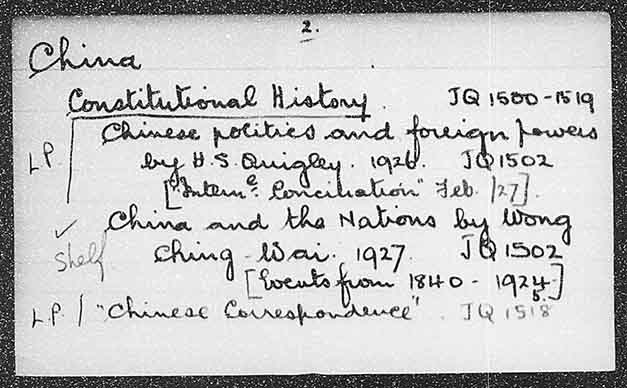 2.
China
Constitutional History. JQ 1500-1519
Chinese politics and foreign powers
L.P. by H.S. Quigley. 1926. JQ1502
["Intern^c. Conciliation" Feb. /27].
✓ China and the Nations by Wong
Shelf Ching-Wai. 1927. JQ1502
[Events from 1840 - 1924]
5.
L.P. / "Chinese Correspondence". JQ 1518